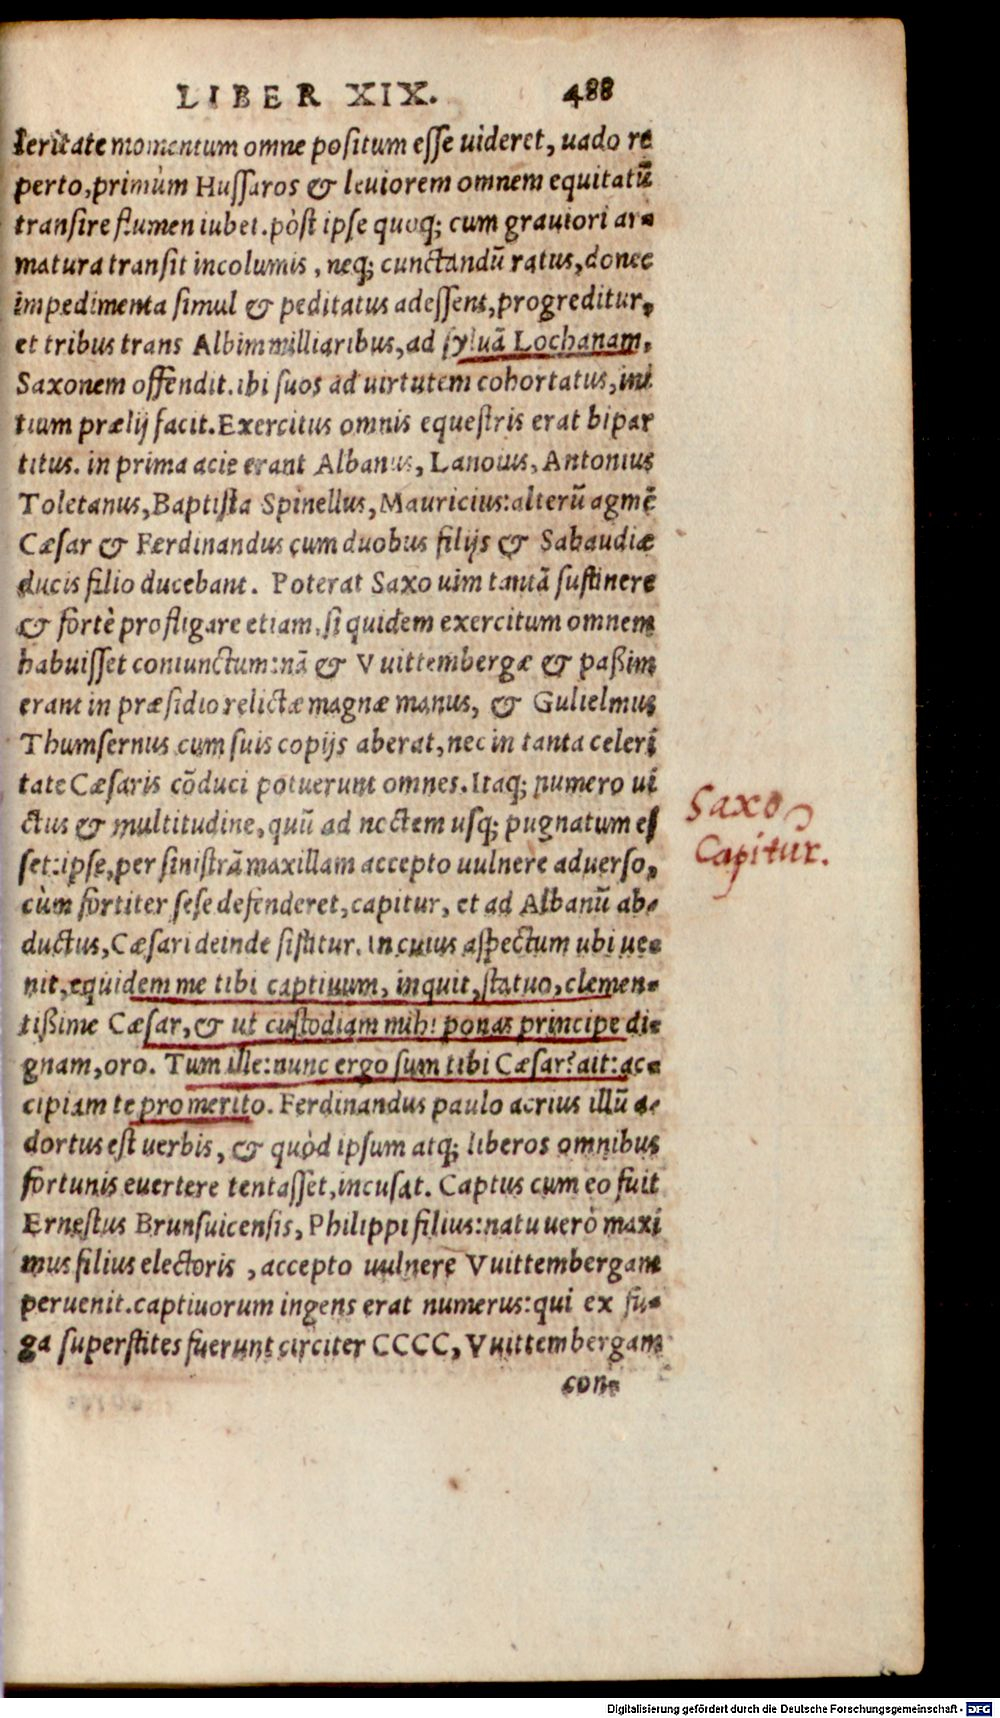 LIBER XIX. 488
leritate momentum omne positum esse uideret, uado re
perto, primùm Hussaros & leuiorem omnem equitatū
transire flumen iubet. pòst ipse quoq; cum grauiori ar-
matura transit incolumis, neq; cunctandū ratus, donec
impedimenta simul & peditatus adessent, progreditur,
et tribus trans Albim milliaribus, ad syluā Lochanam,
Saxonem offendit. ibi suos ad uirtutem cohortatus, ini
tium prælij facit. Exercitus omnis equestris erat bipar
titus. in prima acie erant Albanus, Lanoius, Antonius
Toletanus, Baptista Spinellus, Mauricius: alterū agmē
Cæsar & Ferdinandus cum duobus filijs & Sabaudiæ
ducis filio ducebant. Poterat Saxo uim tantā sustinere
& fortè profligare etiam, si quidem exercitum omnem
habuisset coniunctum: nā & Vuittembergæ & paßim
erant in præsidio relictæ magnæ manus, & Gulielmus
Thumsernus cum suis copijs aberat, nec in tanta celeri
tate Cæsaris cōduci potuerunt omnes. Itaq; numero ui
ctus & multitudine, quū ad noctem usq; pugnatum es
set: ipse, per sinistrā maxillam accepto uulnere aduerso,
cùm fortiter sese defenderet, capitur, et ad Albanū ab-
ductus, Cæsari deinde sistitur. In cuius aspectum ubi ue-
nit, equidem me tibi captiuum, inquit, statuo, clemen-
tißime Cæsar, & ut custodiam mihi ponas principe di-
gnam, oro. Tum ille: nunc ergo sum tibi Cæsar? ait: ac-
cipiam te pro merito. Ferdinandus paulo acrius illū a-
dortus est uerbis, & quòd ipsum atq; liberos omnibus
fortunis euertere tentasset, incusat. Captus cum eo fuit
Ernestus Brunsuicensis, Philippi filius: natu uerò maxi
mus filius electoris, accepto uulnere Vuittembergam
peruenit. captiuorum ingens erat numerus: qui ex fu-
ga superstites fuerunt circiter CCCC, Vuittembergam
con-
Saxo
Capitur.
Digitalisierung gefördert durch die Deutsche Forschungsgemeinschaft - DFG